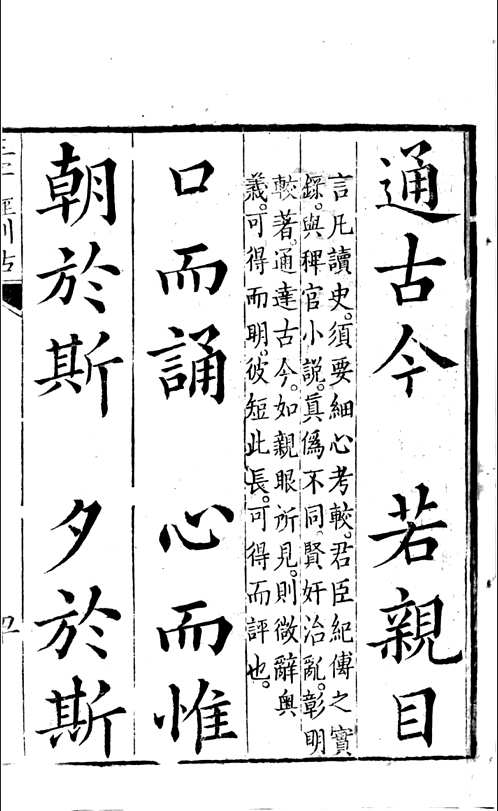 通古今 若親目
言凡讀史。須要細心考較。君臣紀傳之實
錄。與稗官小說。真僞不同。賢奸治亂。彰明
較著。通達古今。如親眼所見。則微辭奥
義。可得而明。彼短此長。可得而評也。
口而誦 心而惟
朝於斯 夕於斯